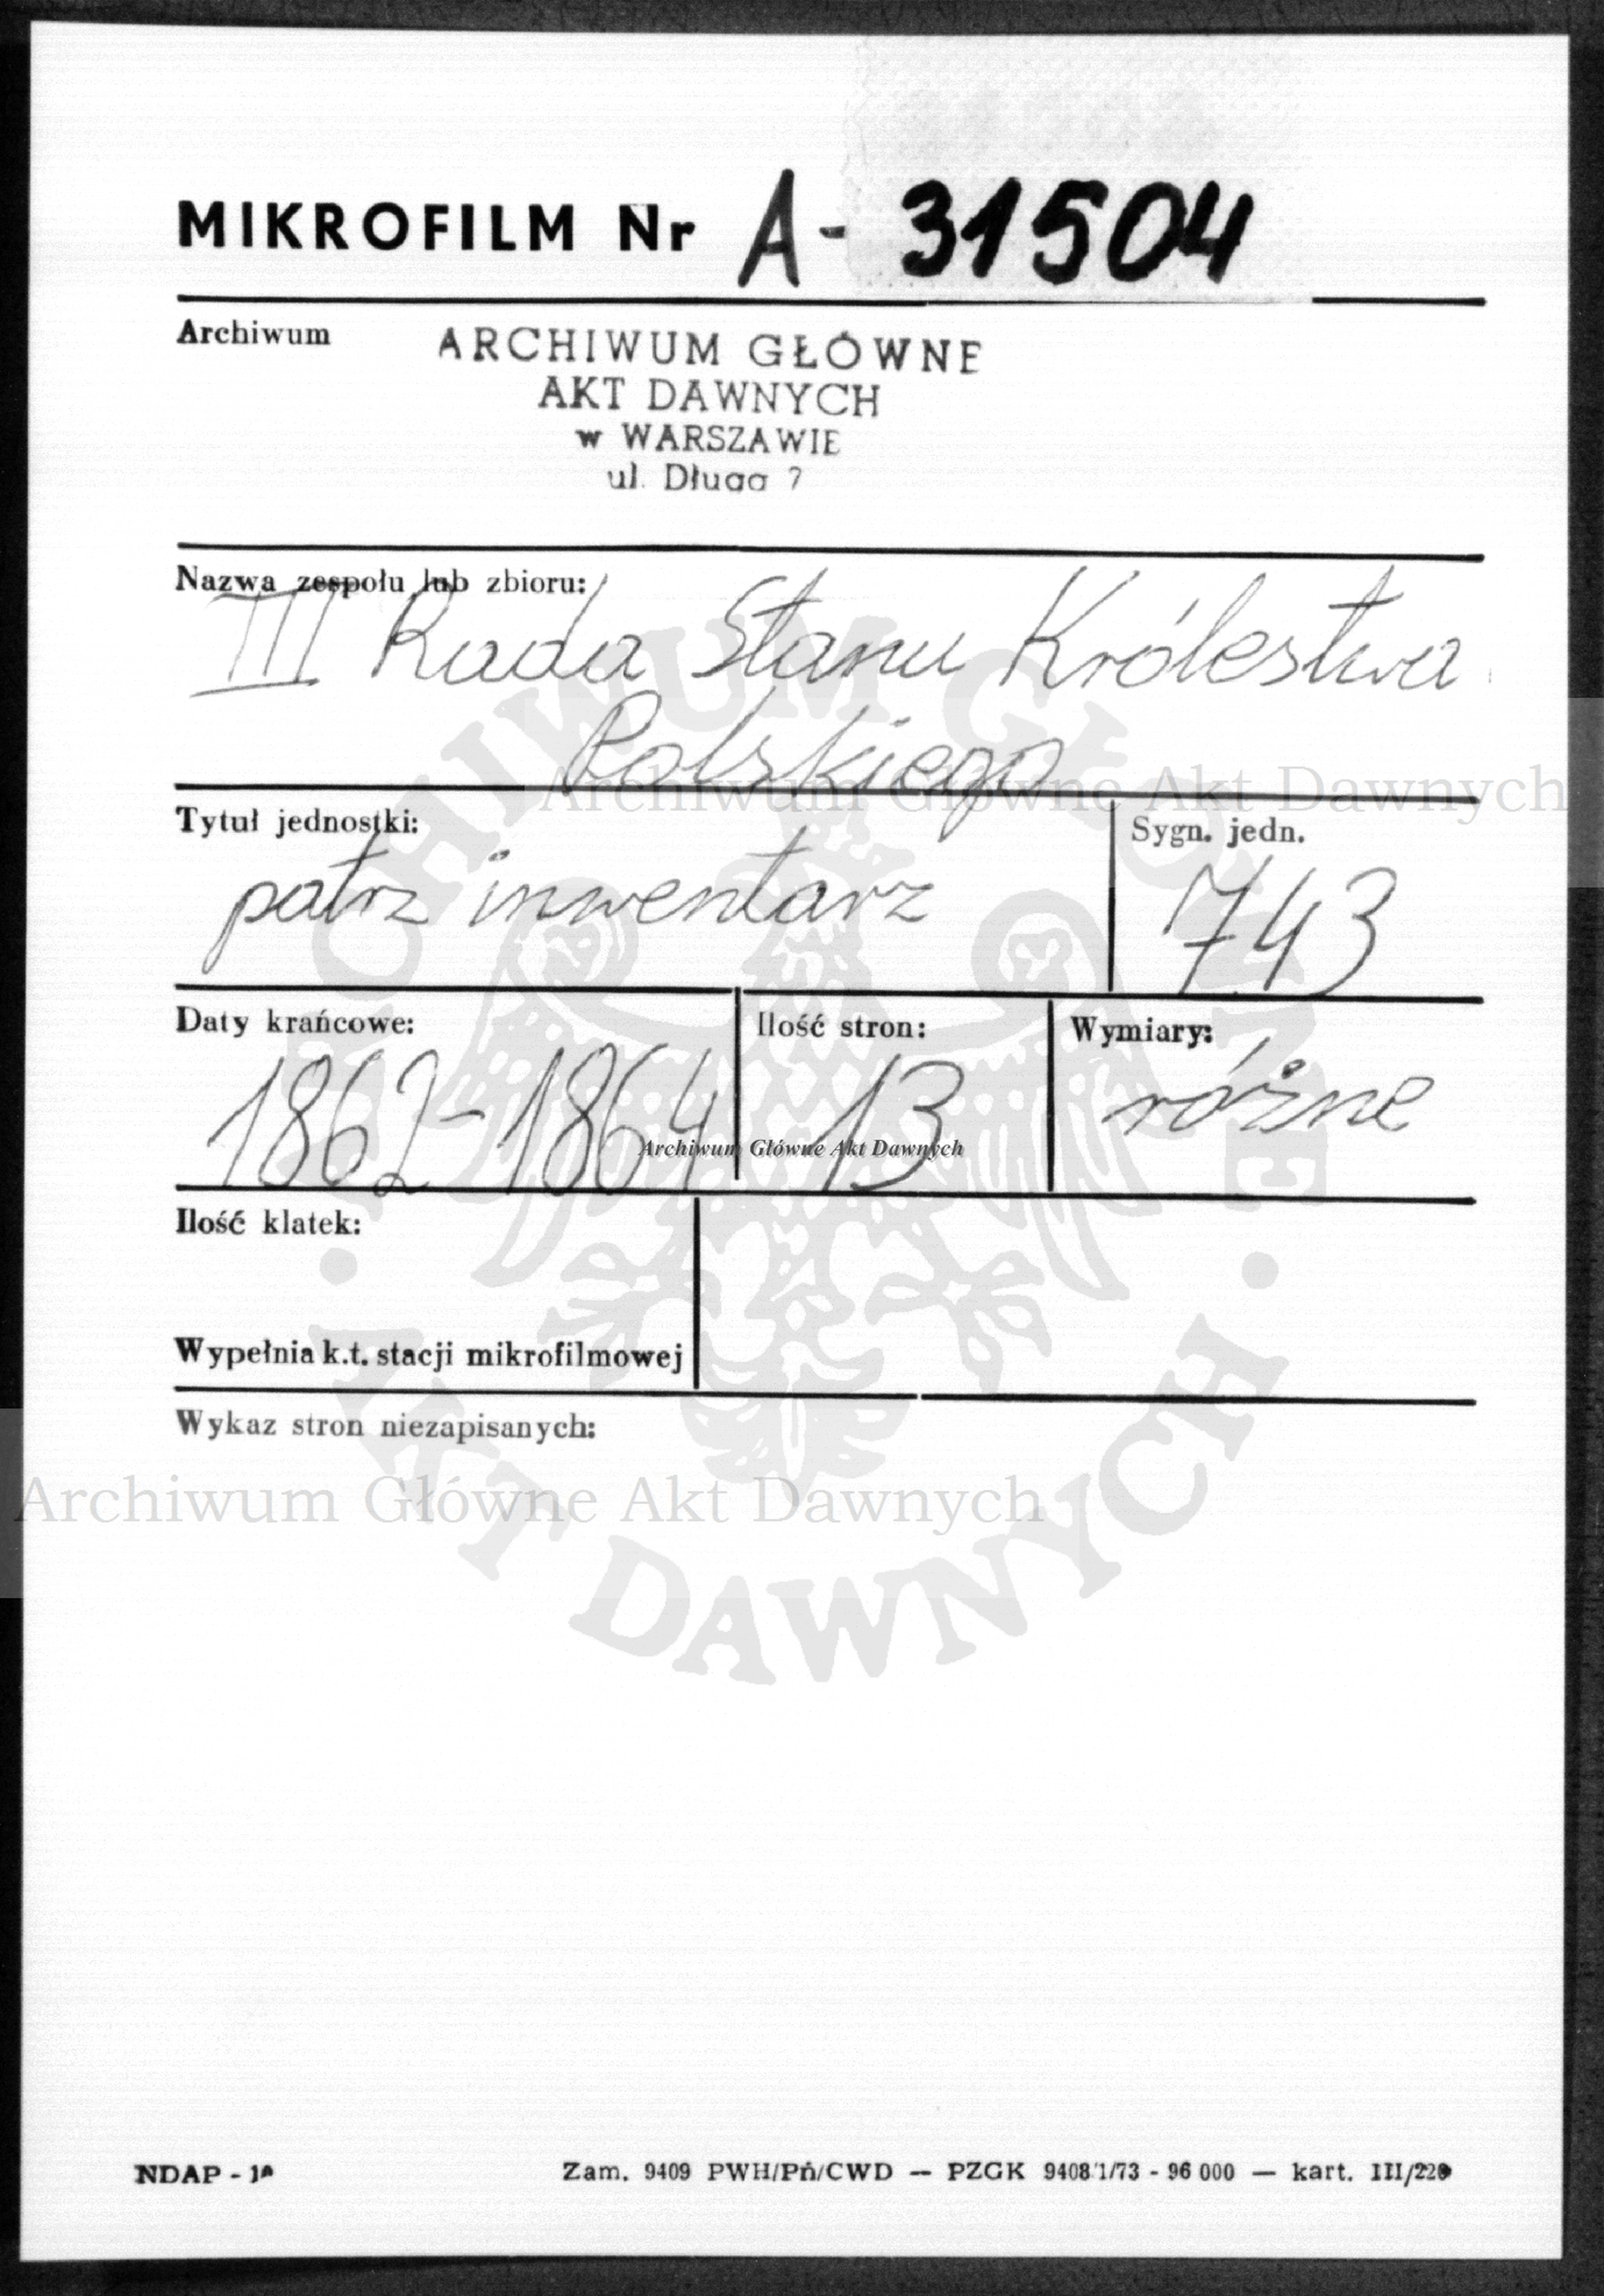 MIKROFILM Nr A- 31504
Archiwum
ARCHIWUM GŁÓWNE
AKT DAWNYCH
w WARSZAWIE
ul. Długa 7
Nazwa zespołu lub zbioru:
III Rada Stanu Królestwa
Polskiego
Archiwum Główne Akt Dawnych
Tytuł jednostki:
patrz inwentarz
Sygn. jedn.
743
Daty krańcowe:
1862-1864
Ilość stron:
13
Wymiary:
różne
Archiwum Główne Akt Dawnych
Ilość klatek:
Wypełnia k.t. stacji mikrofilmowej
Wykaz stron niezapisanych:
Archiwum Główne Akt Dawnych
ARCHIWUM GŁÓWNE
AKT DAWNYCH
NDAP - 1a
Zam. 9409 PWH/Pń/CWD — PZGK 9408/1/73 - 96 000 — kart. III/220